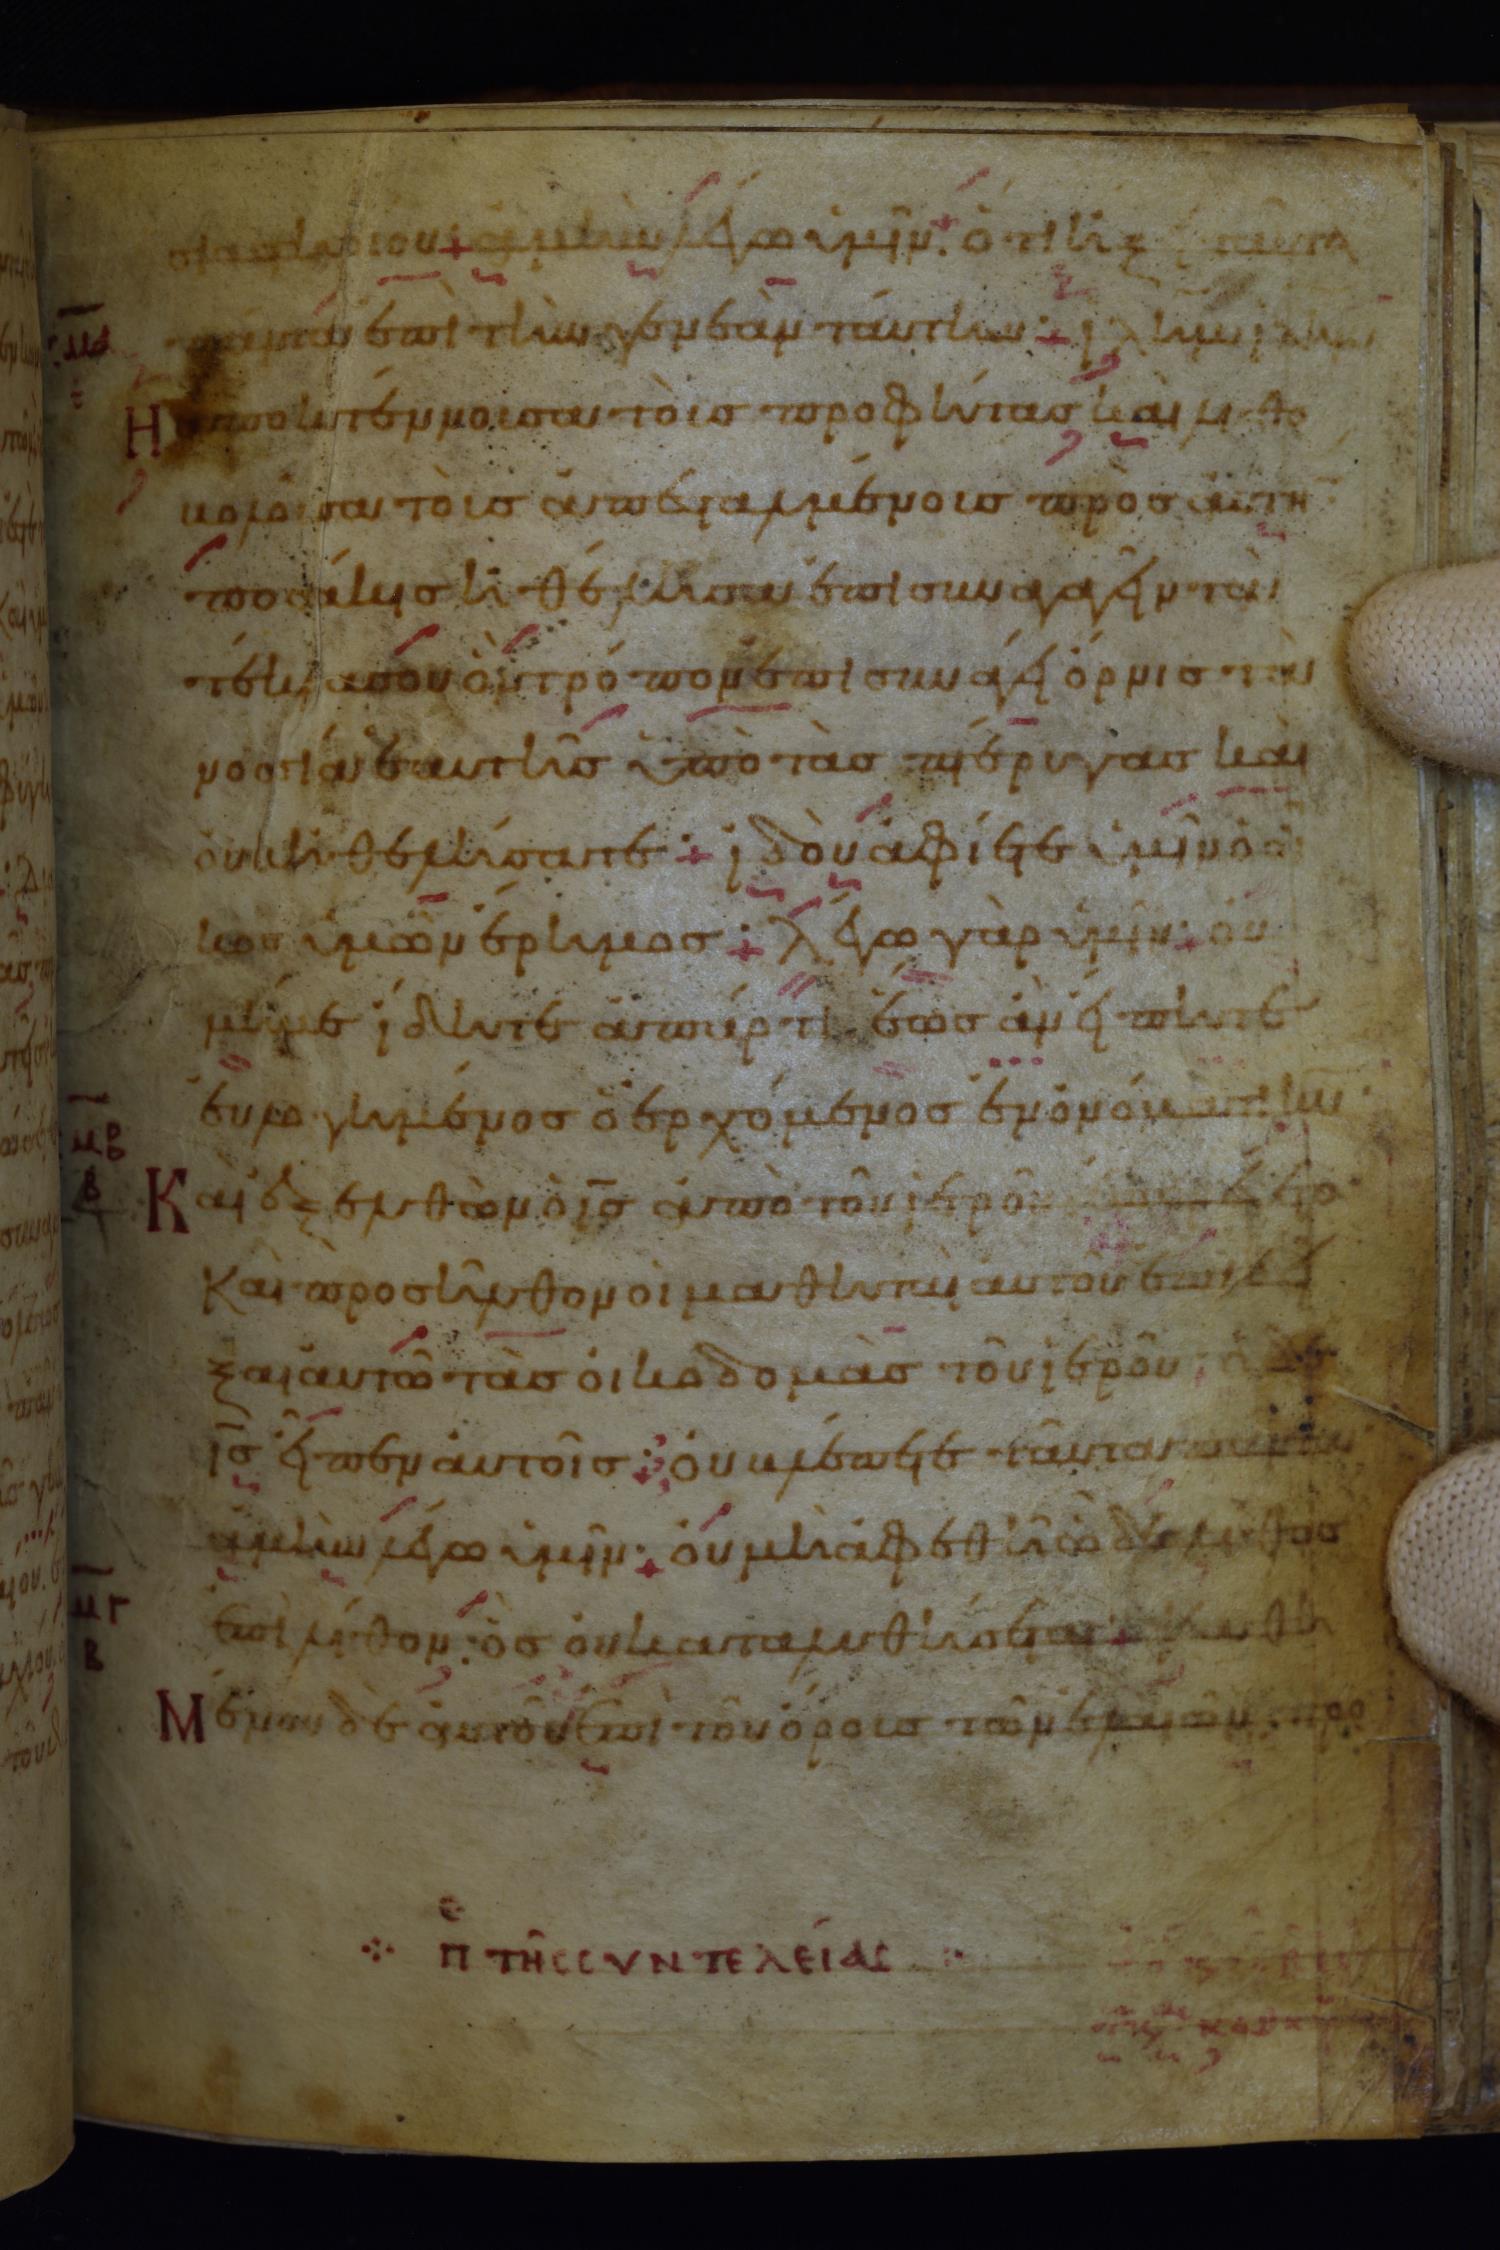 σιαστηρίου + ἀμὴν λέγω ὑμῖν· ὅτι ἥξει ταῦτα
πάντα ἐπὶ τὴν γενεὰν ταύτην + ϊλημ ϊλημ
Η ἀποκτέννουσα τοὺς προφήτας καὶ λιθο
βολοῦσα τοὺς ἀπεσταλμένους πρὸς αὐτὴ
ποσάκις ἠθέλησα ἐπισυναγαγεῖν τὰ
τέκνα σου ὃν τρόπον ἐπισυνάγει ὄρνις τὰ
νοσσία ἑαυτῆς ὑπὸ τὰς πτέρυγας καὶ
οὐκ ἠθελήσατε + ἰδοὺ ἀφίεται ὑμῖν ὁ οἶ
κος ὑμῶν ἔρημος + λέγω γὰρ ὑμῖν + οὐ
μή με ἴδητε ἀπάρτι ἕως ἂν εἴπητε
εὐλογημένος ὁ ἐρχόμενος ἐν ὀνόματι κυ
μβ
β
Καὶ ἐξελθὼν ὁ ις ἀπὸ τοῦ ἱεροῦ ἐπορεύετο
Καὶ προσῆλθον οἱ μαθηταὶ αὐτοῦ ἐπιδεῖ
ξαι αὐτῶ τὰς οἰκοδομὰς τοῦ ἱεροῦ ὁ δὲ
ις εἶπεν αὐτοῖς + οὐ βλέπετε ταῦτα πάντα
ἀμὴν λέγω ὑμῖν + οὐ μὴ ἀφεθῆ ὧδε λίθος
ἐπὶ λίθον· ὃς οὐ καταλυθήσεται + καθη
μγ
β
Μένου δὲ αὐτοῦ ἐπὶ τοῦ ὄρους τῶν ἐλαιῶν προ
Π ΤΗC CΥΝΤΕΛΕΙΑC